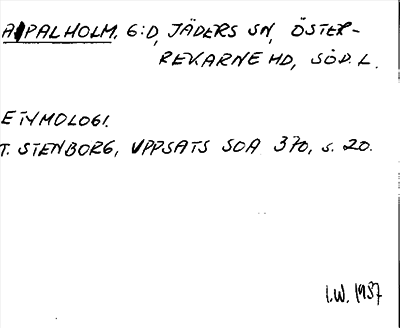 APALHOLM. G:D, JÄDERS SN, ÖSTER-
REKARNE HD, SÖD. L.
ETYMOLOGI.
T. STENBORG, UPPSATS SOA 370, s. 20.
I.W. 1937